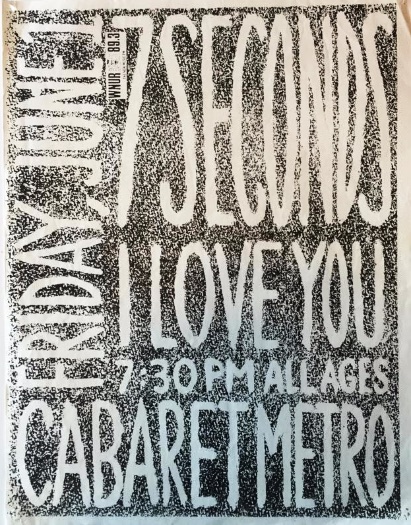 FRIDAY, JUNE 1
WNUR FM 89.3
7 SECONDS
I LOVE YOU
7:30 PM ALL AGES
CABARET METRO